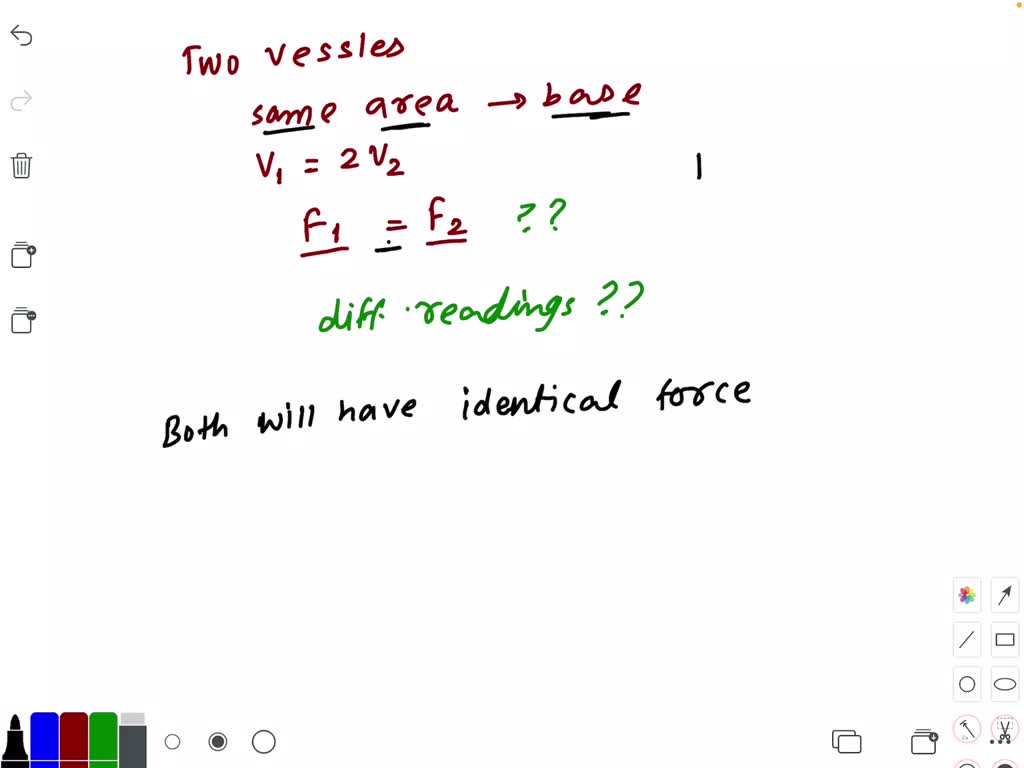 Two vessles
same area → base
V1 = 2V2
F1 = F2 ??
diff. readings ??
Both will have identical force